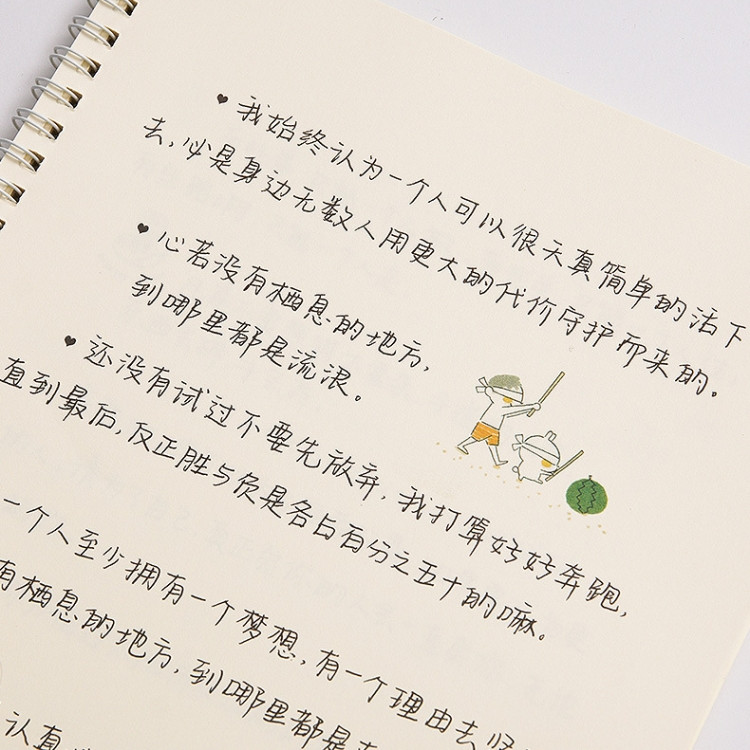 ♥我始终认为一个人可以很天真简单的活下
去,必是身边无数人用更大的代价守护而来的。
♥心若没有栖息的地方,
到哪里都是流浪。
♥还没有试过不要先放弃,我打算好好奔跑,
直到最后,反正胜与负是各占百分之五十的嘛。
一个人至少拥有一个梦想,有一个理由去坚
有栖息的地方,到哪里都是
认真